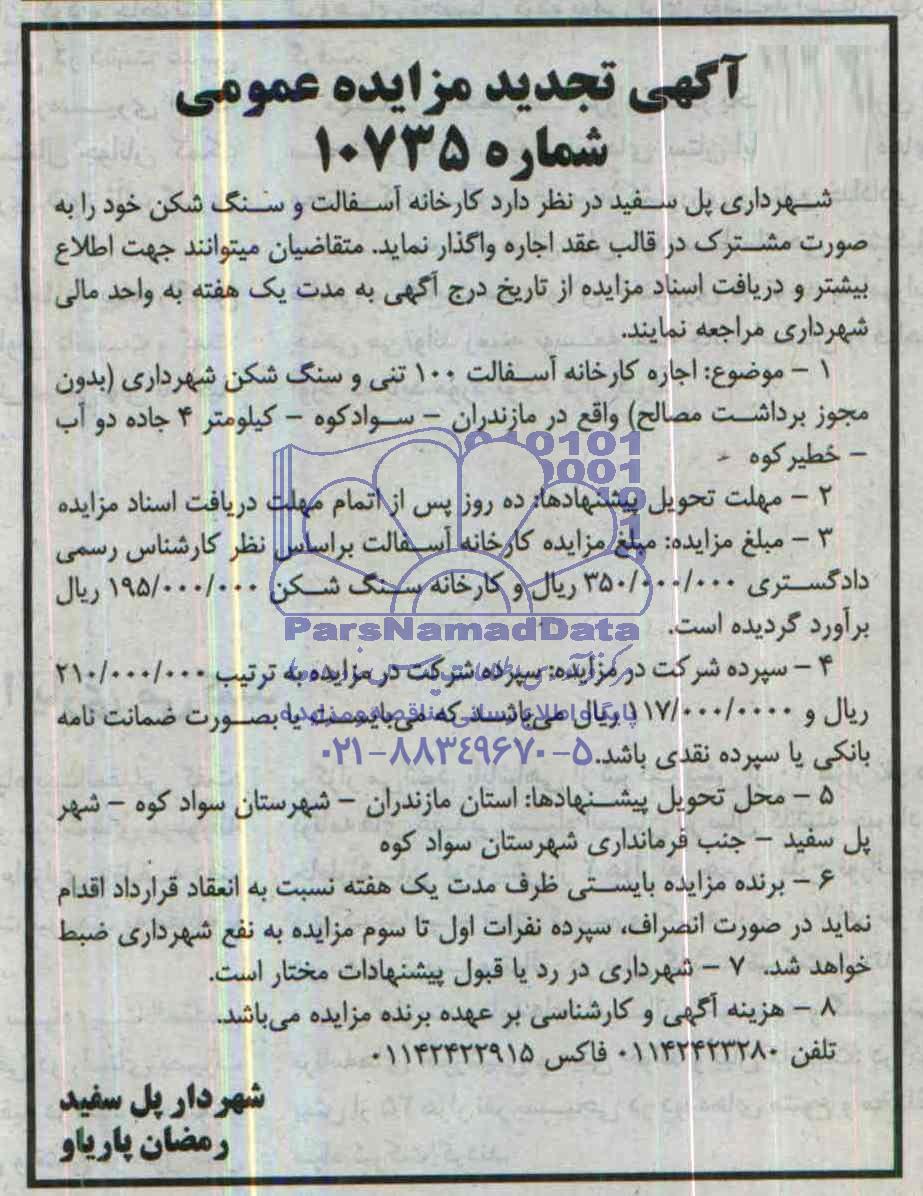 آگهی تجدید مزایده عمومی
شماره ۱۰۷۳۵
شهرداری پل سفید در نظر دارد کارخانه آسفالت و سنگ شکن خود را به
صورت مشترک در قالب عقد اجاره واگذار نماید. متقاضیان میتوانند جهت اطلاع
بیشتر و دریافت اسناد مزایده از تاریخ درج آگهی به مدت یک هفته به واحد مالی
شهرداری مراجعه نمایند.
۱ – موضوع: اجاره کارخانه آسفالت ۱۰۰ تنی و سنگ شکن شهرداری (بدون
مجوز برداشت مصالح) واقع در مازندران – سوادکوه – کیلومتر ۴ جاده دو آب
– خطیرکوه
۲ – مهلت تحویل پیشنهادها: ده روز پس از اتمام مهلت دریافت اسناد مزایده
۳ – مبلغ مزایده: مبلغ مزایده کارخانه آسفالت براساس نظر کارشناس رسمی
دادگستری ۳۵۰/۰۰۰/۰۰۰ ریال و کارخانه سنگ شکن ۱۹۵/۰۰۰/۰۰۰ ریال
برآورد گردیده است.
ParsNamadData
۴ – سپرده شرکت در مزایده: سپرده شرکت در مزایده به ترتیب ۲۱۰/۰۰۰/۰۰۰
ریال و ۱۱۷/۰۰۰/۰۰۰۰ ریال می‌باشد که می‌بایست یا بصورت ضمانت نامه
بانکی یا سپرده نقدی باشد.
۰۲۱-۸۸۳۴۹۶۷۰-۵
۵ – محل تحویل پیشنهادها: استان مازندران – شهرستان سواد کوه – شهر
پل سفید – جنب فرمانداری شهرستان سواد کوه
۶ – برنده مزایده بایستی ظرف مدت یک هفته نسبت به انعقاد قرارداد اقدام
نماید در صورت انصراف، سپرده نفرات اول تا سوم مزایده به نفع شهرداری ضبط
خواهد شد. ۷ – شهرداری در رد یا قبول پیشنهادات مختار است.
۸ – هزینه آگهی و کارشناسی بر عهده برنده مزایده می‌باشد.
تلفن ۰۱۱۴۲۴۲۳۲۸۰ فاکس ۰۱۱۴۲۴۲۲۹۱۵
شهردار پل سفید
رمضان پاریاو